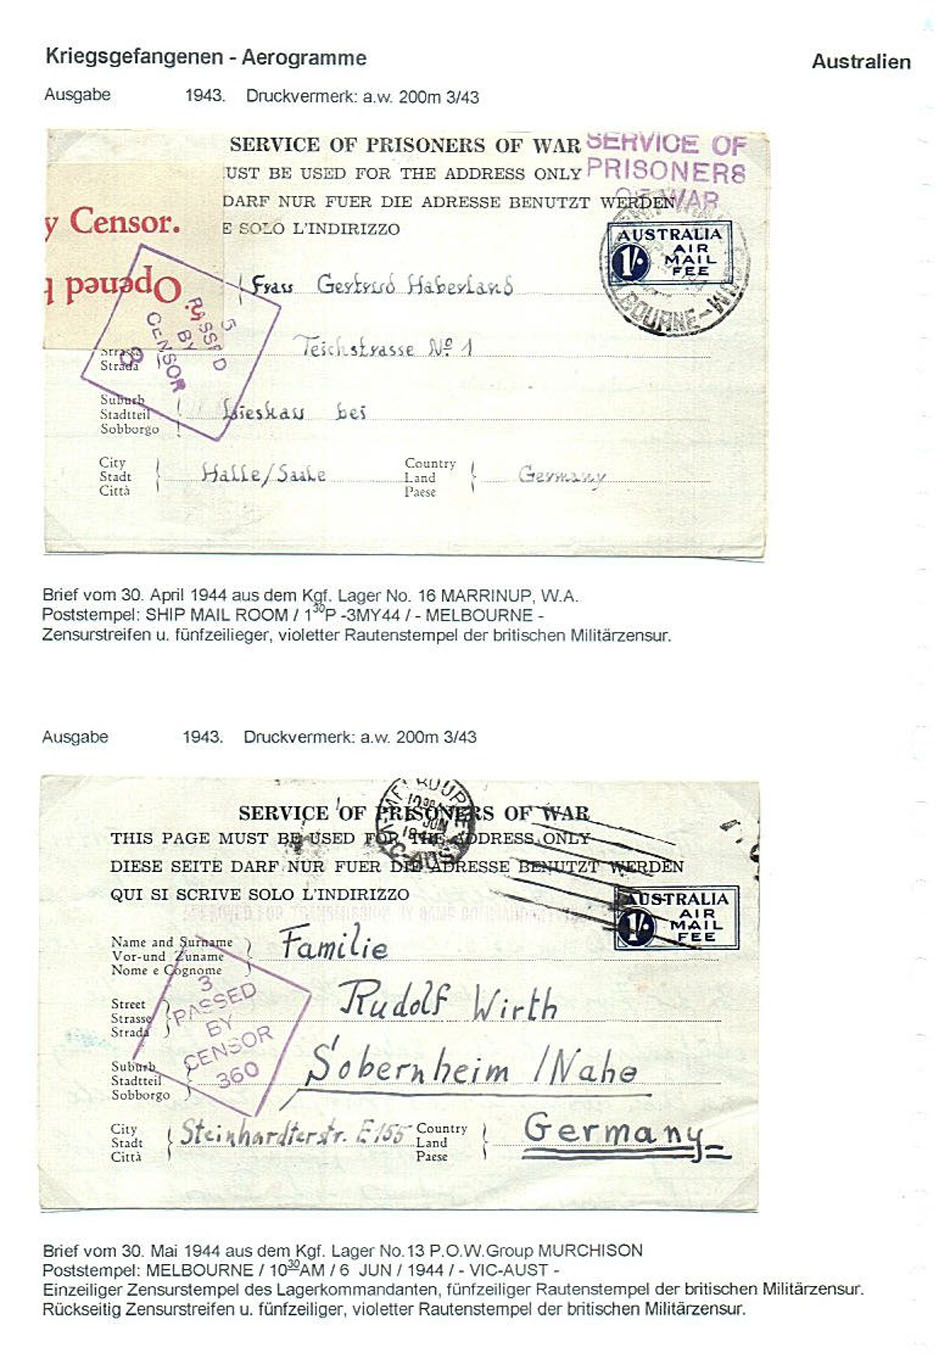 Kriegsgefangenen - Aerogramme
Australien
Ausgabe 1943. Druckvermerk: a.w. 200m 3/43
SERVICE OF PRISONERS OF WAR
SERVICE OF
PRISONERS
OF WAR
UST BE USED FOR THE ADDRESS ONLY
DARF NUR FUER DIE ADRESSE BENUTZT WERDEN
E SOLO L'INDIRIZZO
AUSTRALIA
1/- AIR
MAIL
FEE
BOURNE
y Censor.
Opened
5
PASSED
BY
CENSOR
Frau Gertrud Haberland
Strasse
Strada
Teichstrasse No 1
Suburb
Stadtteil
Sobborgo
Lieskau bei
City
Stadt
Città
Halle/Saale
Country
Land
Paese
Germany
Brief vom 30. April 1944 aus dem Kgf. Lager No. 16 MARRINUP, W.A.
Poststempel: SHIP MAIL ROOM / 1 30 P -3MY44 / - MELBOURNE -
Zensurstreifen u. fünfzeilieger, violetter Rautenstempel der britischen Militärzensur.
Ausgabe 1943. Druckvermerk: a.w. 200m 3/43
MELBOURNE
JUN
1944
VIC-AUST
SERVICE OF PRISONERS OF WAR
THIS PAGE MUST BE USED FOR THE ADDRESS ONLY
DIESE SEITE DARF NUR FUER DIE ADRESSE BENUTZT WERDEN
QUI SI SCRIVE SOLO L'INDIRIZZO
AUSTRALIA
1/- AIR
MAIL
FEE
Name and Surname
Vor-und Zuname
Nome e Cognome
Familie
Street
Strasse
Strada
Rudolf Wirth
3
PASSED
BY
CENSOR
360
Suburb
Stadtteil
Sobborgo
Sobernheim / Nahe
City
Stadt
Città
Steinhardterstr. E 155
Country
Land
Paese
Germany
Brief vom 30. Mai 1944 aus dem Kgf. Lager No.13 P.O.W.Group MURCHISON
Poststempel: MELBOURNE / 10 30 AM / 6 JUN / 1944 / - VIC-AUST -
Einzeiliger Zensurstempel des Lagerkommandanten, fünfzeiliger Rautenstempel der britischen Militärzensur.
Rückseitig Zensurstreifen u. fünfzeiliger, violetter Rautenstempel der britischen Militärzensur.